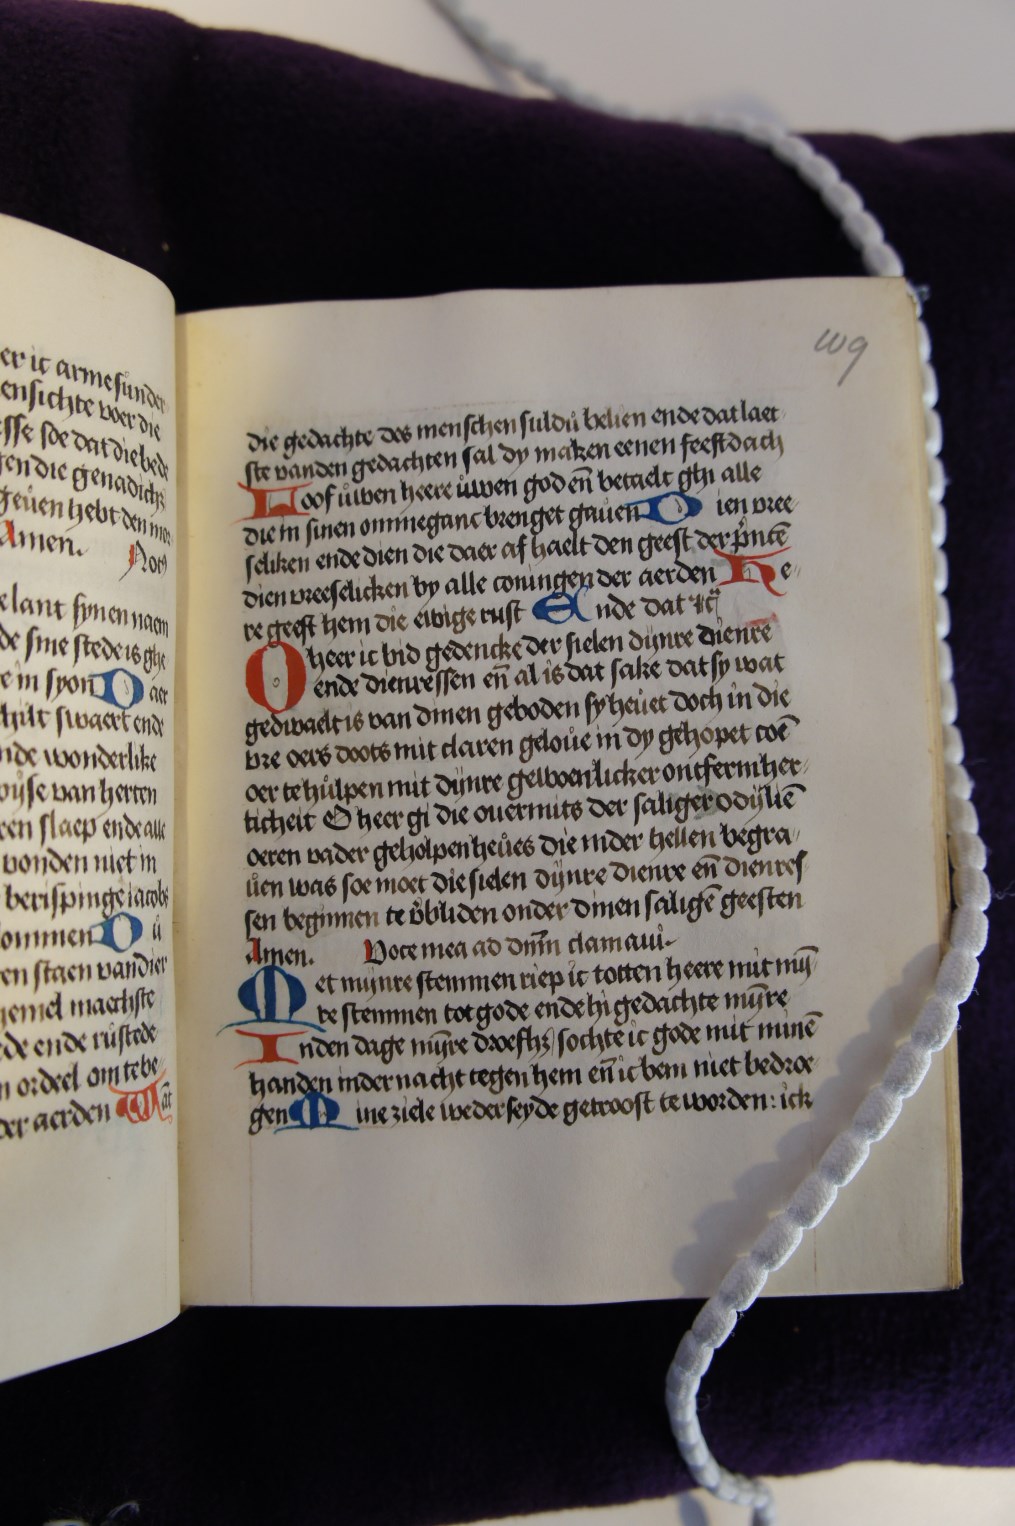 er ic arme sunder
ensichte voer die
sse soe dat die bede
gen die genadich
geuen hebt den
Amen. Not
elant synen naem
de sine stede is ghe
e in syon D aer
schilt swaert ende
nde wonderlike
wijse van herten
ren slaep ende alle
vonden niet in
berispinge iacobs
ommen D u
en staen van dier
hemel maechste
de ende rustede
n ordeel om te be
der aerden Wāt
119
die gedachte des menschen suldū belien ende dat laet
ste vanden gedachten sal dy maken eenen feestdach
Loof uwen heere uwen god eñ betaelt ghi alle
die in sinen ommeganc brenget gauen Dien vree
seliken ende dien die daer af haelt den geest der prince
dien vreeselicken by alle coningen der aerden He
re geest hem die ewige rust Ende dat
O heer ic bid gedencke der sielen dijnre dienre
ende dienressen eñ al is dat sake dat sy wat
gedwaelt is van dinen geboden sy heuet doch in die
vre oers doots mit claren geloue in dy gehopet coē
oer te hulpen mit dijnre gewoenlicker ontfermher
ticheit O heer gi die ouermits der saliger odyliē
oeren vader geholpen heues die inder hellen begra
uen was soe moet die sielen dijnre dienre eñ dienres
sen beginnen te vbliden onder dinen saligē geesten
Amen. Voce mea ad dnm clamaui.
Met mijnre stemmen riep ic totten heere mit mij
re stemmen tot gode ende hi gedachte mijre
Inden dage mijre droefhz sochte ic gode mit minē
handen inder nacht tegen hem eñ ic bem niet bedroe
gen Mine ziele weder seyde getroost te worden: ick